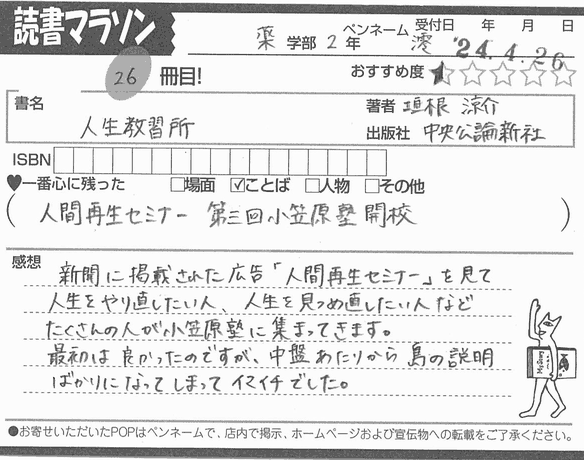 読書マラソン
薬 学部 2 年 ペンネーム 澪 受付日 年 月 日 '24.4.26
26 冊目! おすすめ度 ★☆☆☆☆
書名 人生教習所
著者 垣根 涼介
出版社 中央公論新社
ISBN
♥一番心に残った □場面 ☑ことば □人物 □その他
(人間再生セミナー 第三回小笠原塾 開校)
感想
新聞に掲載された広告「人間再生セミナー」を見て
人生をやり直したい人、人生を見つめ直したい人など
たくさんの人が小笠原塾に集まってきます。
最初は良かったのですが、中盤あたりから島の説明
ばかりになってしまってイマイチでした。
●お寄せいただいたPOPはペンネームで、店内で掲示、ホームページおよび宣伝物への転載をご了承ください。